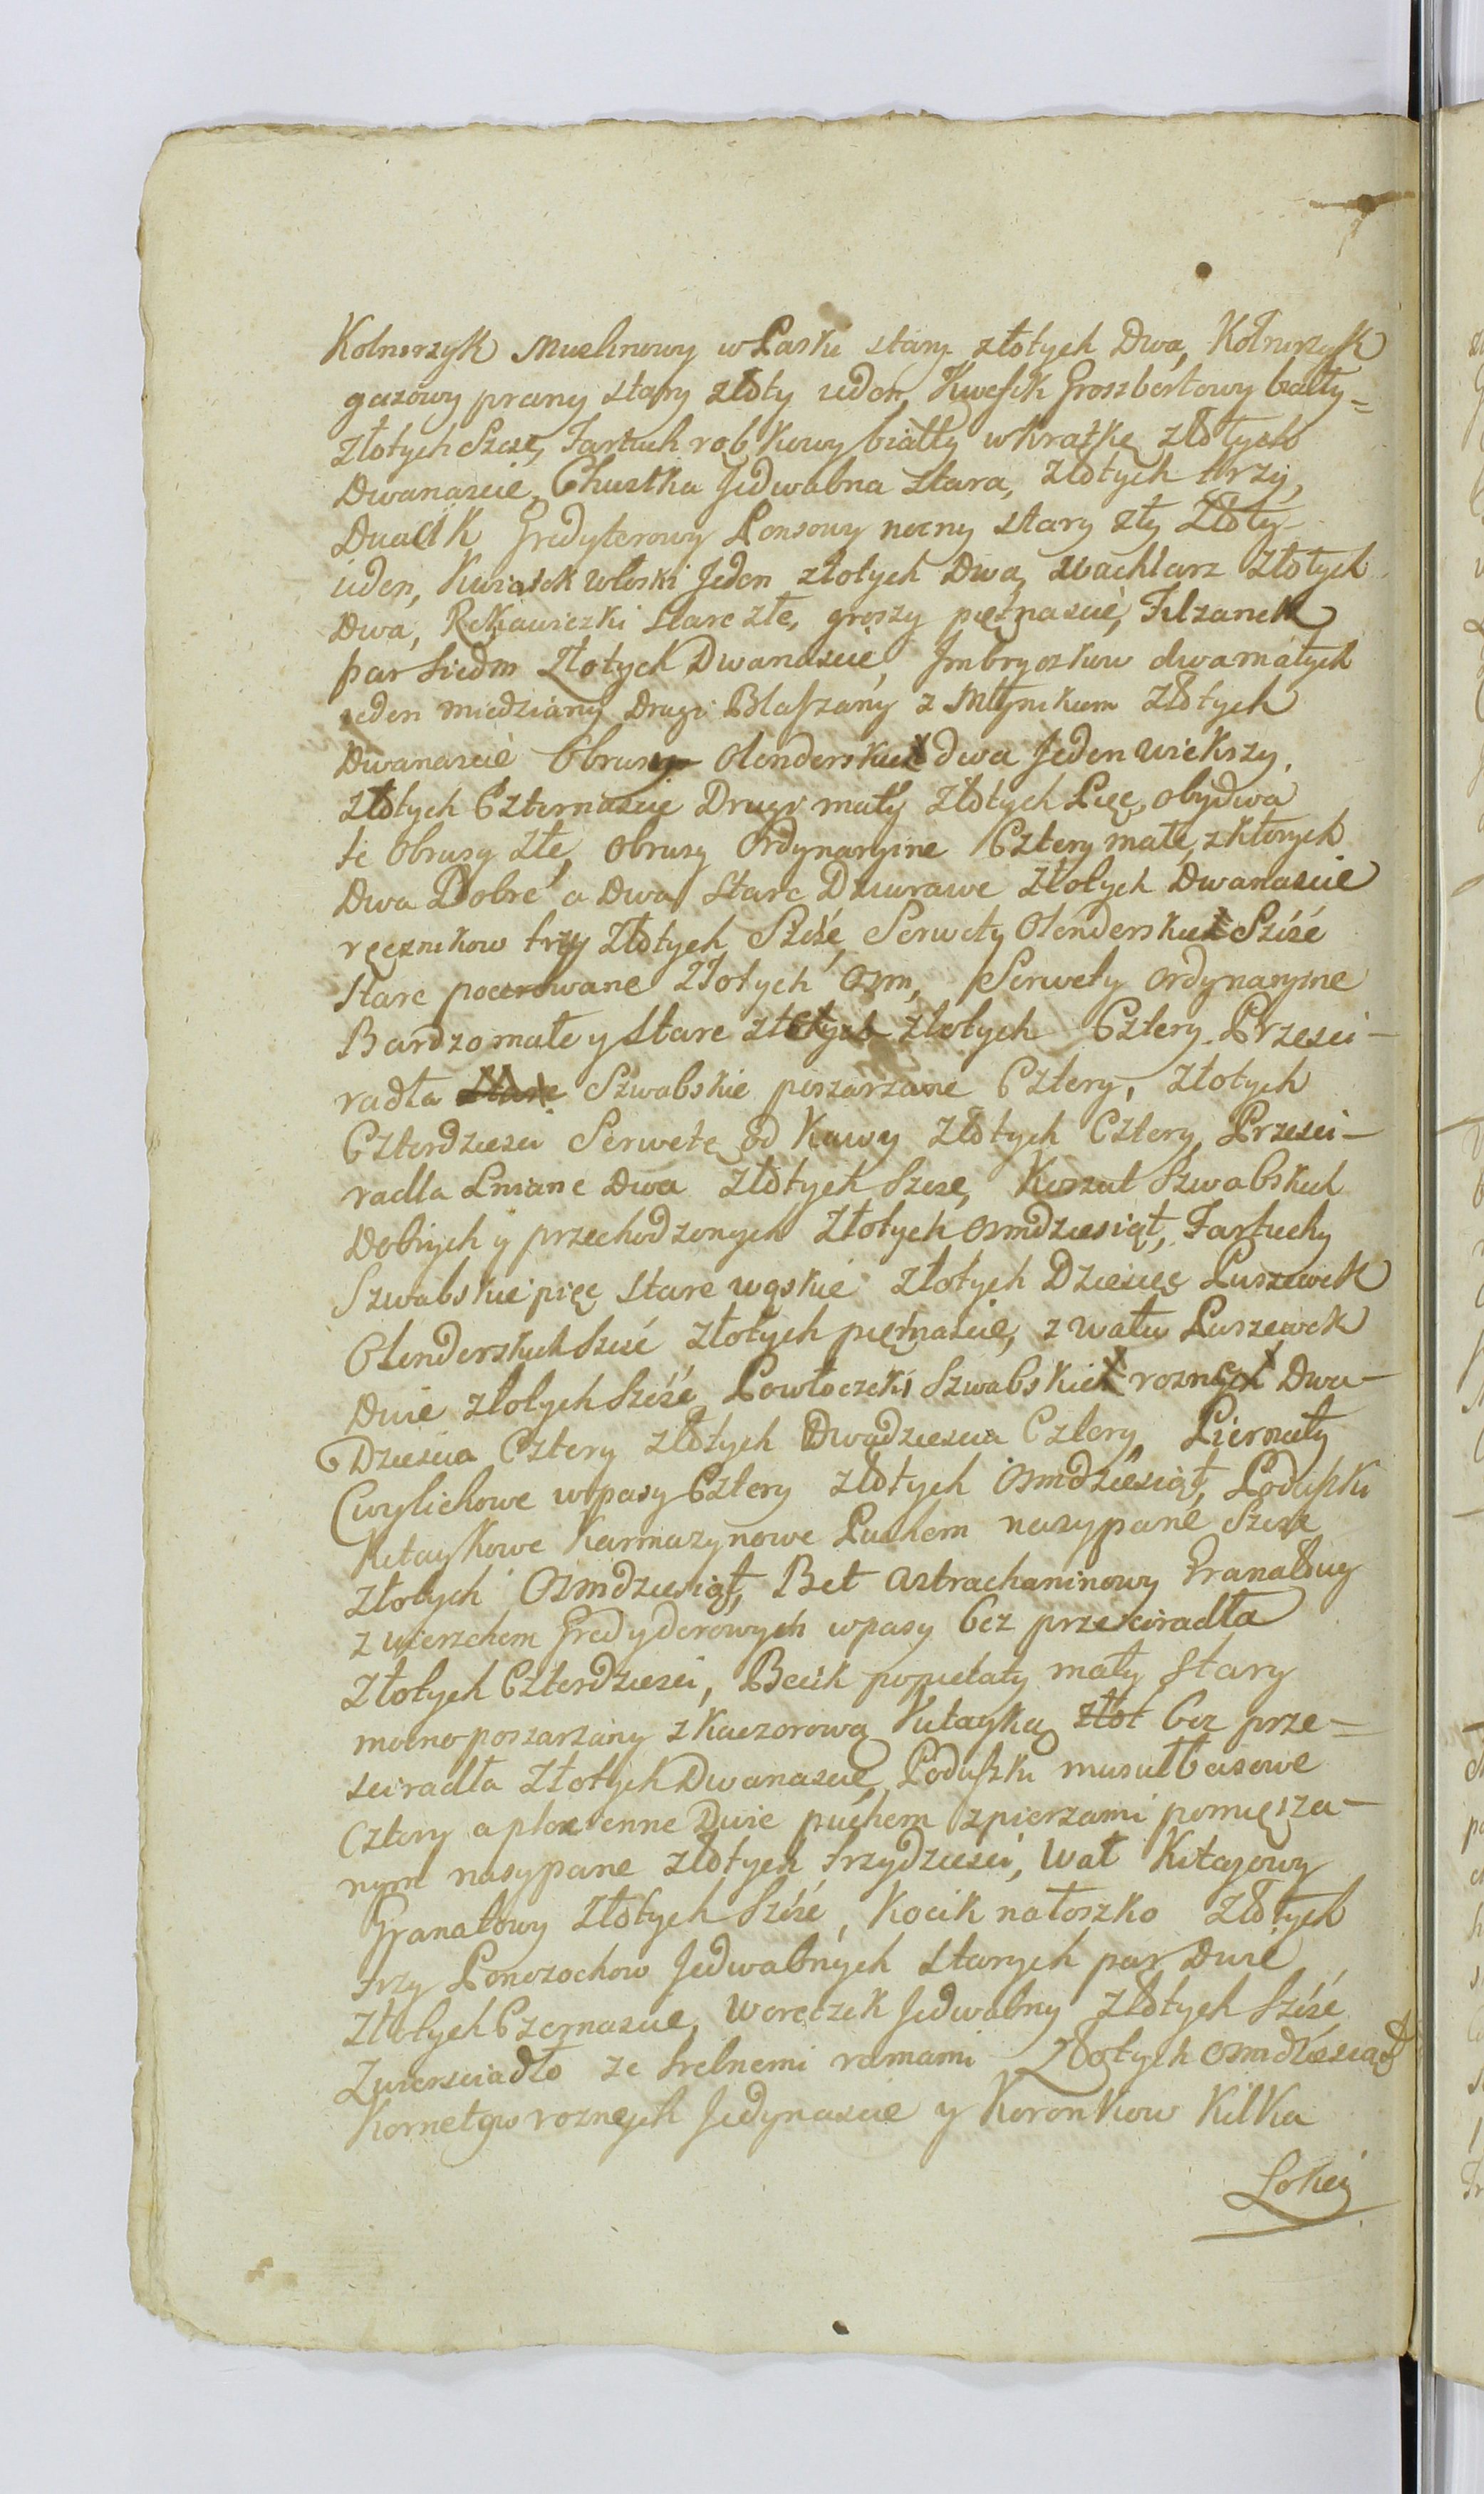 Kolnerzyk Muslinowy w Paski stary złotych Dwa, Kołnerzyk
gazowy prany stary złoty ieden, Kwefik Groszbertowy biały=
złotych Szesc, Fartuch rąbkowy biały w kratkę złotych
Dwanascie, Chustka Jedwabna stara, złotych trzy,
Gredyterowy Ponsowy nocny stary zły złoty
ieden, Kwiatek włoski Jeden złotych Dwa, wachlarz złotych
Dwa, Rękawiczki stare złe, groszy piętnascie, Filzanek
par Siedm Złotych Dwanascie, Imbryczkow dwa małych
ieden miedziany Drugi Blaszany z Młynikiem złotych
Dwanascie Obrusy Olenderskie dwa Jeden wiekszy,
złotych Czternascie Drugi mały złotych Pięc, obydwa
te Obrusy złe, obrusy Ordynaryine Cztery małe, z ktorych
Dwa Dobre a Dwa Stare Dziurawe złotych Dwanascie
ręcznikow trzy złotych Szésć, Serwety Olenderskie Szésć
Stare pocerowane złotych Osm, Serwety ordynaryine
Bardzo małe y stare złotych złotych Cztery Przesci-
radła Stare Szwabskie poszarzane Cztery, złotych
Czterdziesci Serwetę od Kawy złotych Cztery, Przesci-
radla Lniane Dwa złotych Szesc, Koszul Szwabskich
Dobrych y przechodzonych złotych osmdziesiąt, Fartuchy
Szwabskie pięc stare wąskie złotych Dziesięc Puszewek
Olenderskich Szesć złotych piętnascie, z wału Puszewek
Dwie złotych Szésć Powłoczeki Szwabskich roznych Dwa-
Dziescia Cztery złotych Dwadziescia Cztery, Piernaty
Cwylichowe w pasy Cztery złotych Osmdziesiąt, Poduszki
Kitaykowe Karmazynowe Puchem nasypane Szesc
złotych Osmdziesiąt, Bet Astrachaninowy Granatowy
z wierzchem Gredyderowych w pasy bez przescieradła
złotych Czterdziesci, Becik popielaty mały stary
mocno poszarzany z Kaczorową Kitayką złot bez prze-
scieradła złotych Dwanascie, Poduszki musułbasowe
Cztery a płocienne Dwie puchem z pierzami pomięsza-
nym nasypane złotych trzydziesci, Wał Kitayowy
Granatowy złotych Szésć, Kocik na łoszko złotych
trzy Ponczochow Jedwabnych starych par Dwie
złotych Czternascie, Woreczek Jedwabny złotych Szésć
Zwierciadło ze srebnemi ramami złotych osmdziesiąt
Kornetow roznych Jedynascie y Koronkow Kilka
Łokci